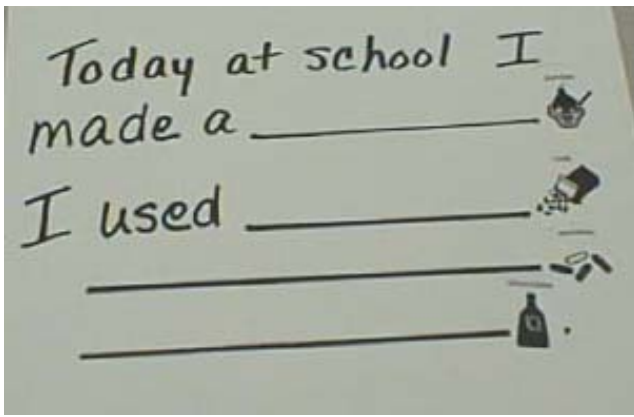 Today at school I
made a
I used
.